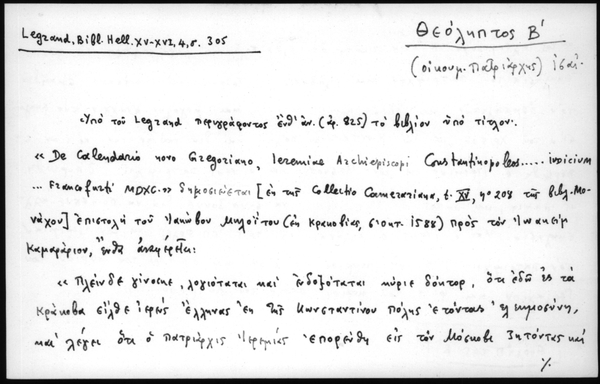 Legrand, Bibl. Hell. XV-XVI, 4, σ. 305
Θεόληπτος Β'
(οἰκουμ. Πατριάρχης) ἱσαι.
Ὑπὸ τοῦ Legrand περιγράφοντος ἔνθ' ἀν. (ἀρ. 825) τὸ βιβλίον ὑπὸ τίτλον:
« De Calendario novo Gregoriano, Ieremiae Archiepiscopi Constantinopoleos ..... indicium
... Francofurti MDXC.» δημοσιεύεται [ἐκ τῆς Collectio Camerariana, t. XV, nº 208 τῆς βιβλ. Μο-
νάχου] ἐπιστολὴ τοῦ Ἰακώβου Μηλοΐτου (ἐκ Κρακοβίας, 6 ὀκτ. 1588) πρὸς τὸν Ἰωακεὶμ
Καμεράριον, ἔνθα ἀναφέρεται:
« Πλεῖνδε γίνοσκε, λογιόταται καὶ ἐνδοξόταται κύριε δόκτορ, ὅτι ἐδῶ ἐς τὰ
Κράκοβα εἶλθε ἱερεὺς ἕλληνας ἐκ τῆς Κωνσταντίνου πόλης ζετόντας ἐλεημοσύνη,
καὶ λέγει ὅτι ὁ πατριάρχις Ἱερεμίας ἐπορεύθη εἰς τὸν Μόσκοβι ζητόντας καὶ
%